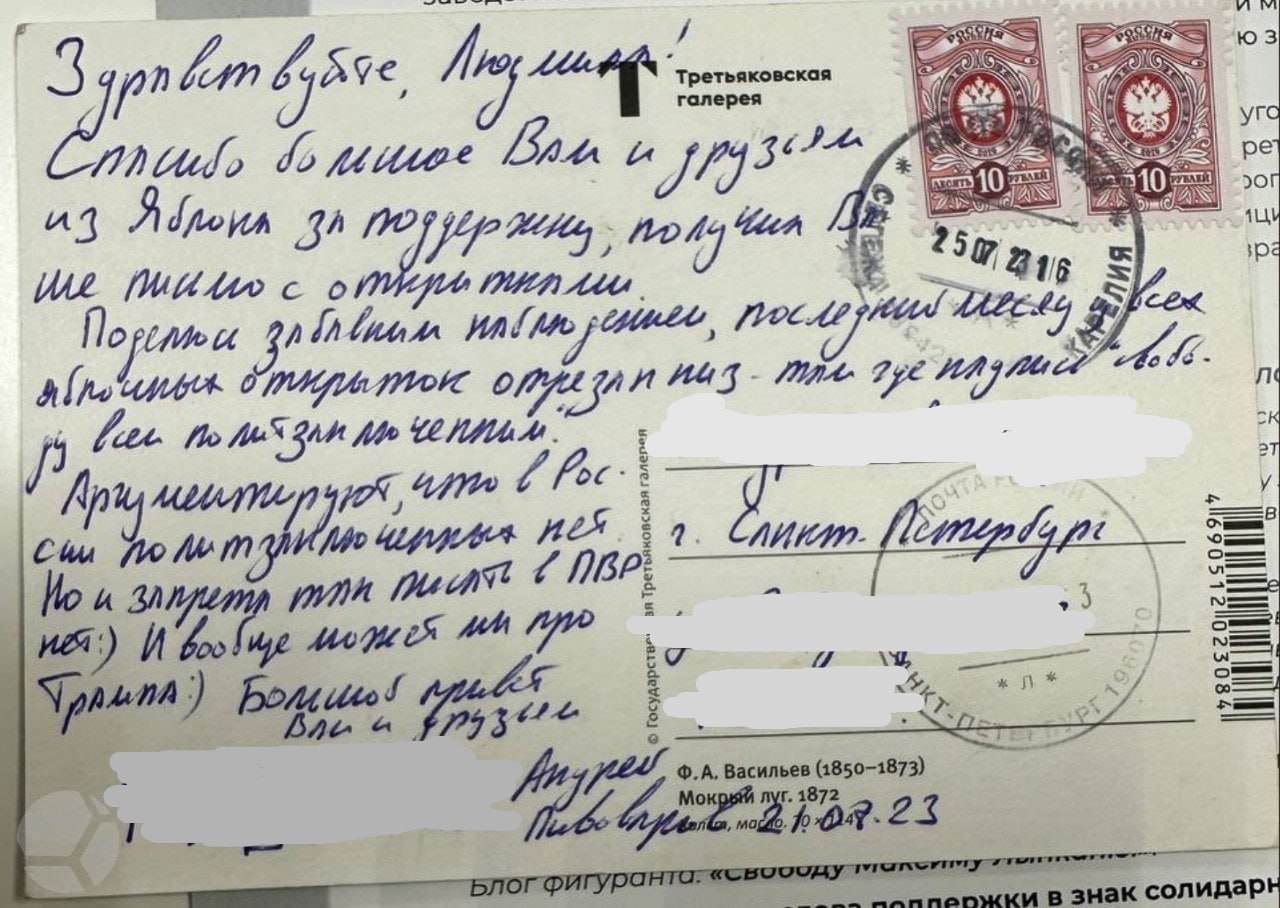 Здравствуйте, Людмила!
Третьяковская
галерея
Спасибо большое Вам и друзьям
из Яблока за поддержку, получил Ва
ше письмо с открытками.
Поделюсь забавным наблюдением, последний месяц у всех
яблочных открыток отрезан низ - там где надпись "Свобо-
ду всем политзаключенным".
Аргументируют, что в Рос-
сии политзаключенных нет.
Но и запрета так писать в ПВР
нет:) И вообще может мы про
Трампа:) Большой привет
Вам и друзьям
Андрей
Пивоваров 21.07.23
РОССИЯ
ДЕСЯТЬ 10 РУБЛЕЙ
РОССИЯ
ДЕСЯТЬ 10 РУБЛЕЙ
25 07 23 16
КАРЕЛИЯ
СЕГЕЖА
© Государственная Третьяковская галерея
г. Санкт-Петербург
ПОЧТА РОССИИ
* Л *
САНКТ-ПЕТЕРБУРГ 196070
Ф.А. Васильев (1850–1873)
Мокрый луг. 1872
Холст, масло. 70 ×
4 690512 023084
Блог фигуранта: «Свободу Максиму
поддержки в знак солидарн